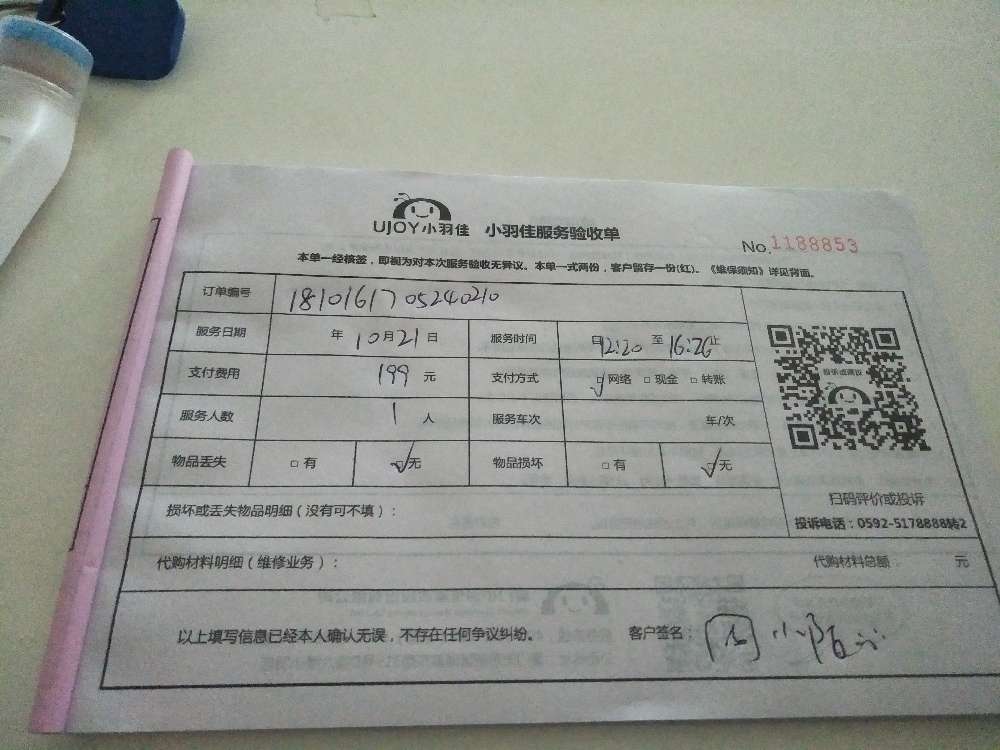 UJOY小羽佳 小羽佳服务验收单
No.1188853
本单一经核签，即视为对本次服务验收无异议。本单一式两份，客户留存一份(红)。《维保须知》详见背面。
订单编号 1810161705240210
服务日期 年10月21日 服务时间 日12:20至16:26止
支付费用 199元 支付方式 □网络 □现金 □转账
服务人数 1人 服务车次 车/次
物品丢失 □有 □无 物品损坏 □有 □无
扫码评价或投诉
投诉电话：0592-5178888转2
损坏或丢失物品明细（没有可不填）：
代购材料明细（维修业务）： 代购材料总额： 元
以上填写信息已经本人确认无误，不存在任何争议纠纷。 客户签名：周小陌